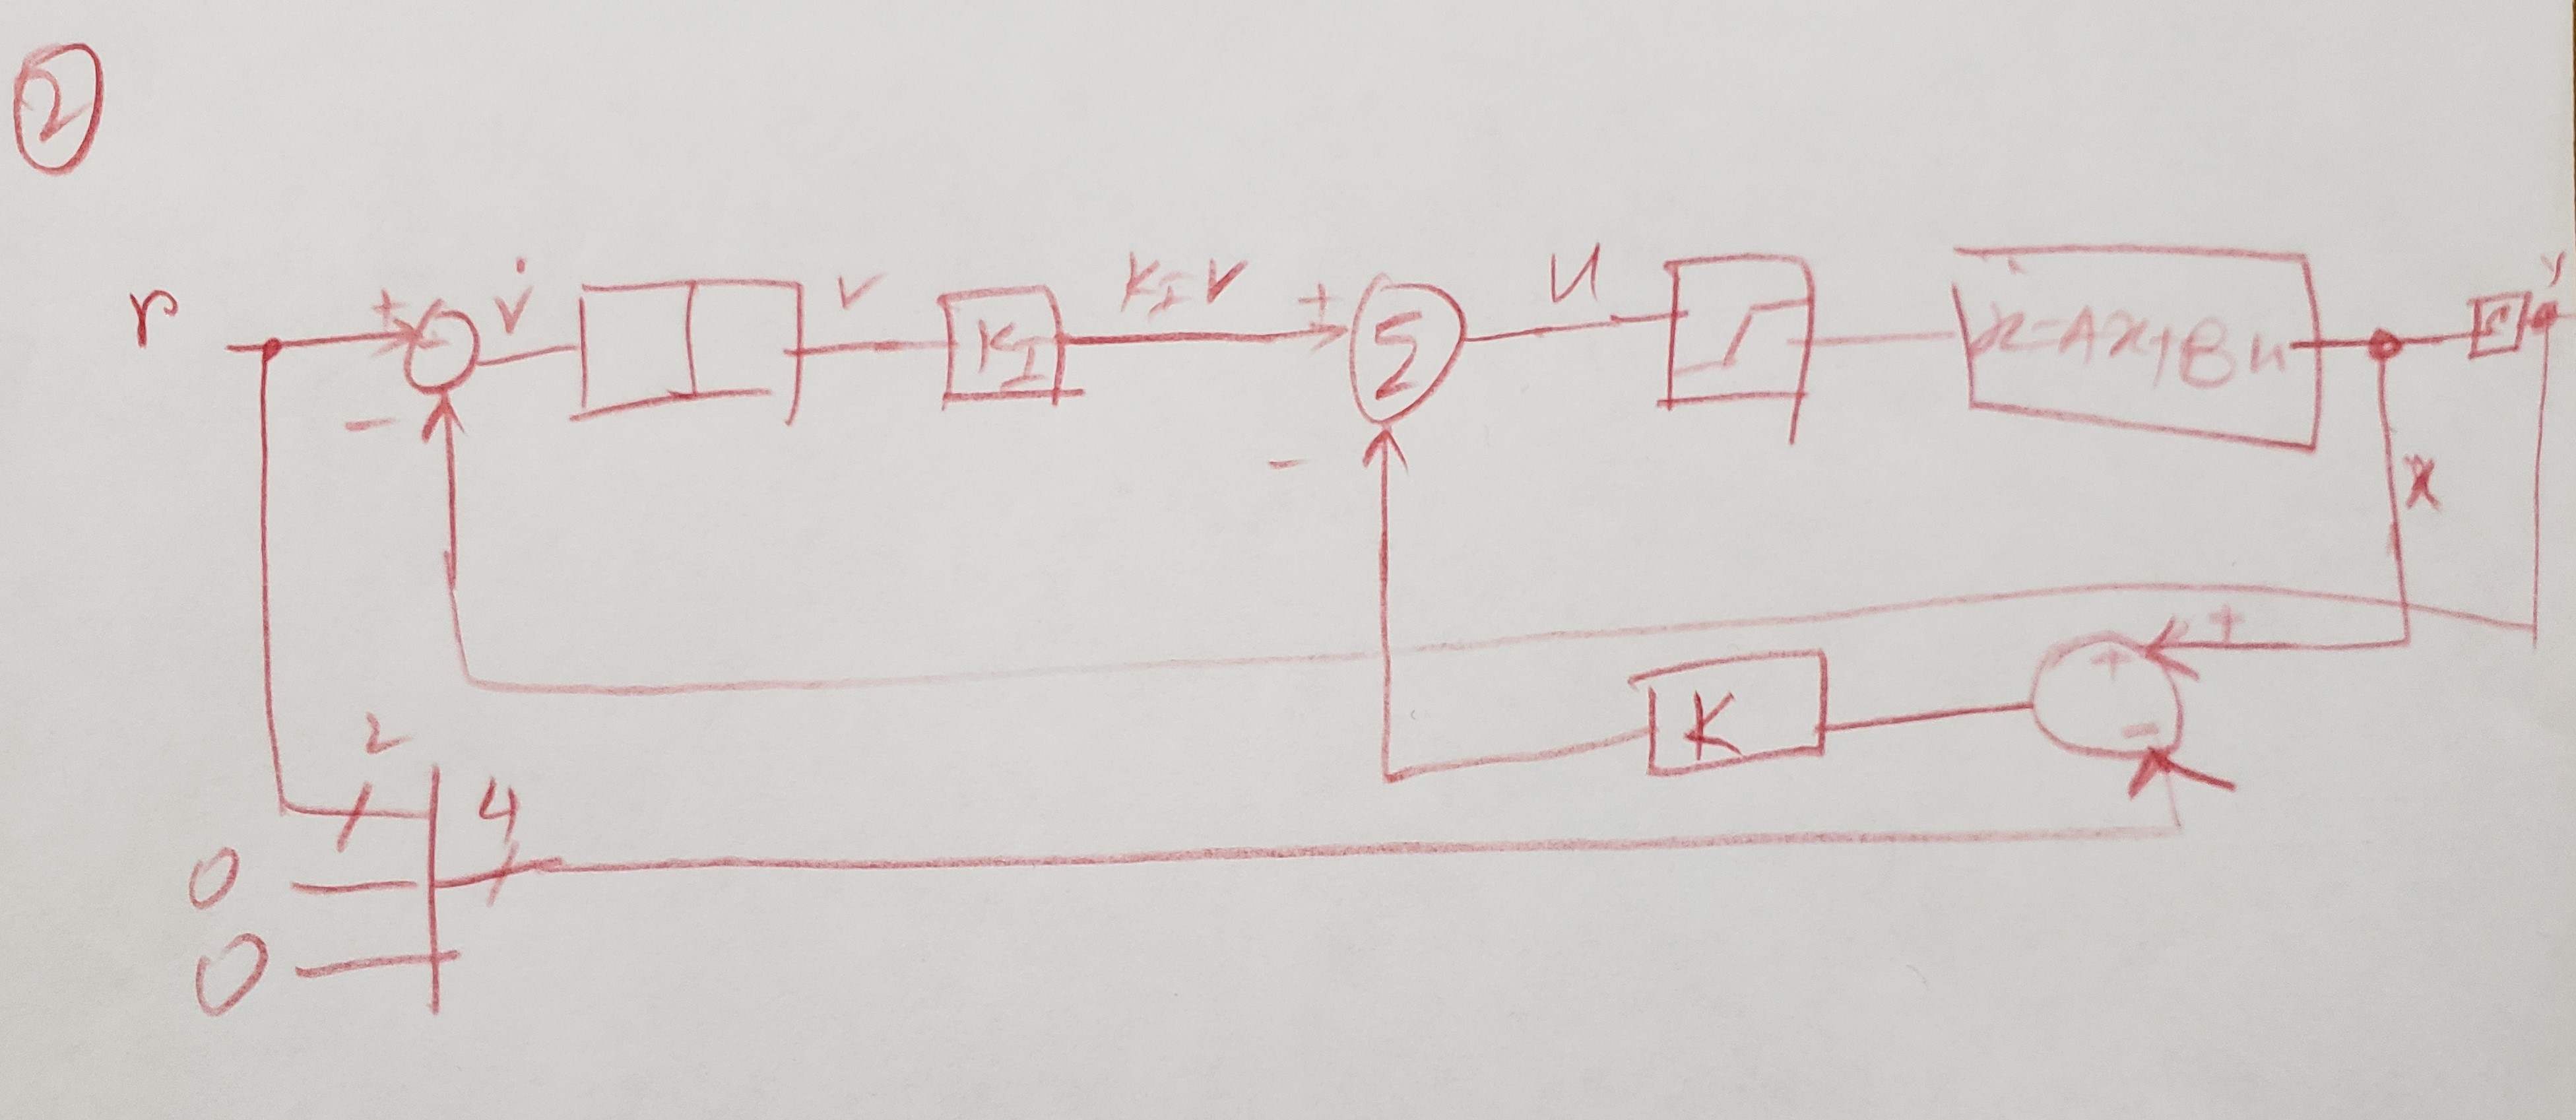 2
r + v̇ v K_I K_I v + Σ u ẋ=Ax+Bu C y
-
-
x
+
+
2
K
-
4
0
0